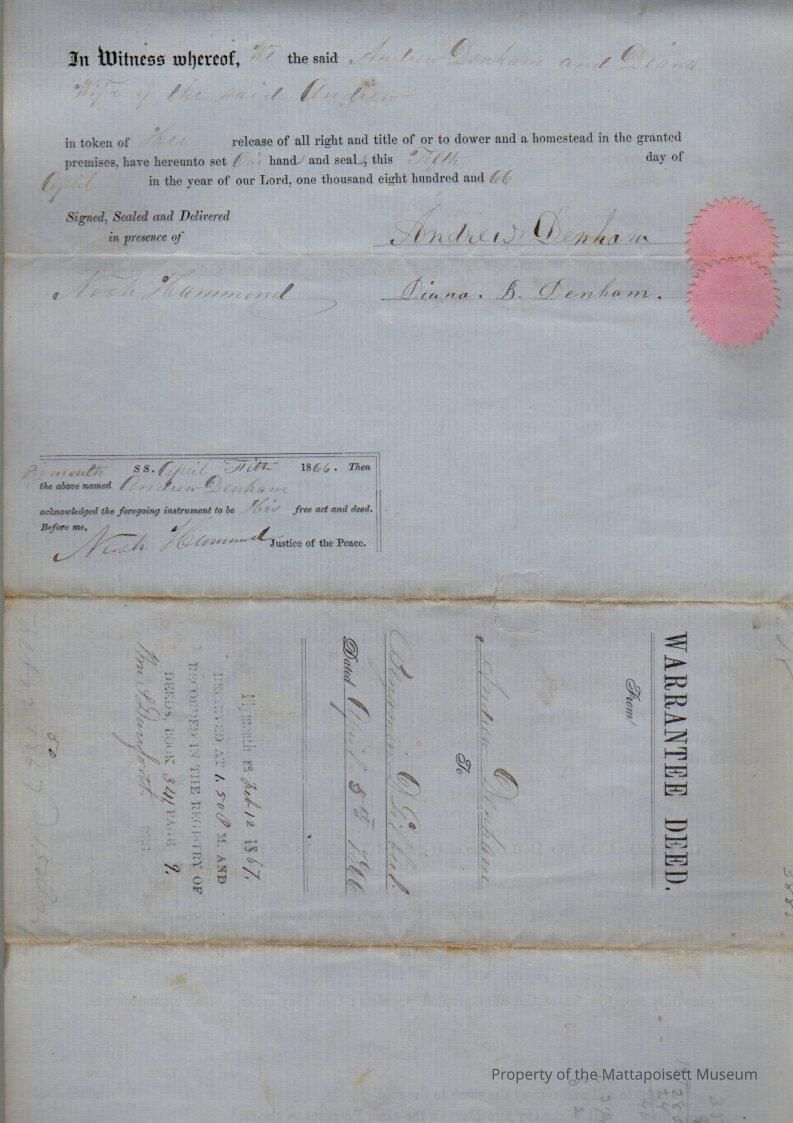 In Witness whereof, We the said Andrew Denham and Diana
Wife of the said Andrew
in token of Her release of all right and title of or to dower and a homestead in the granted
premises, have hereunto set Our hands and seals, this Fifth day of
April in the year of our Lord, one thousand eight hundred and 66
Signed, Sealed and Delivered
in presence of
Andrew Denham
Noah Hammond
Diana. B. Denham.
Plymouth SS. April Fifth 1866. Then
the above named Andrew Denham
acknowledged the foregoing instrument to be His free act and deed.
Before me,
Noah Hammond Justice of the Peace.
WARRANTEE DEED.
From
Andrew Denham
To
Benjamin
Dated April 5th 1866
Plymouth ss Feb 12 1867.
RECEIVED AT 1.50 P M. AND
RECORDED IN THE REGISTRY OF
DEEDS, BOOK 341 PAGE 9.
Wm S Danforth
50
3885
Property of the Mattapoisett Museum